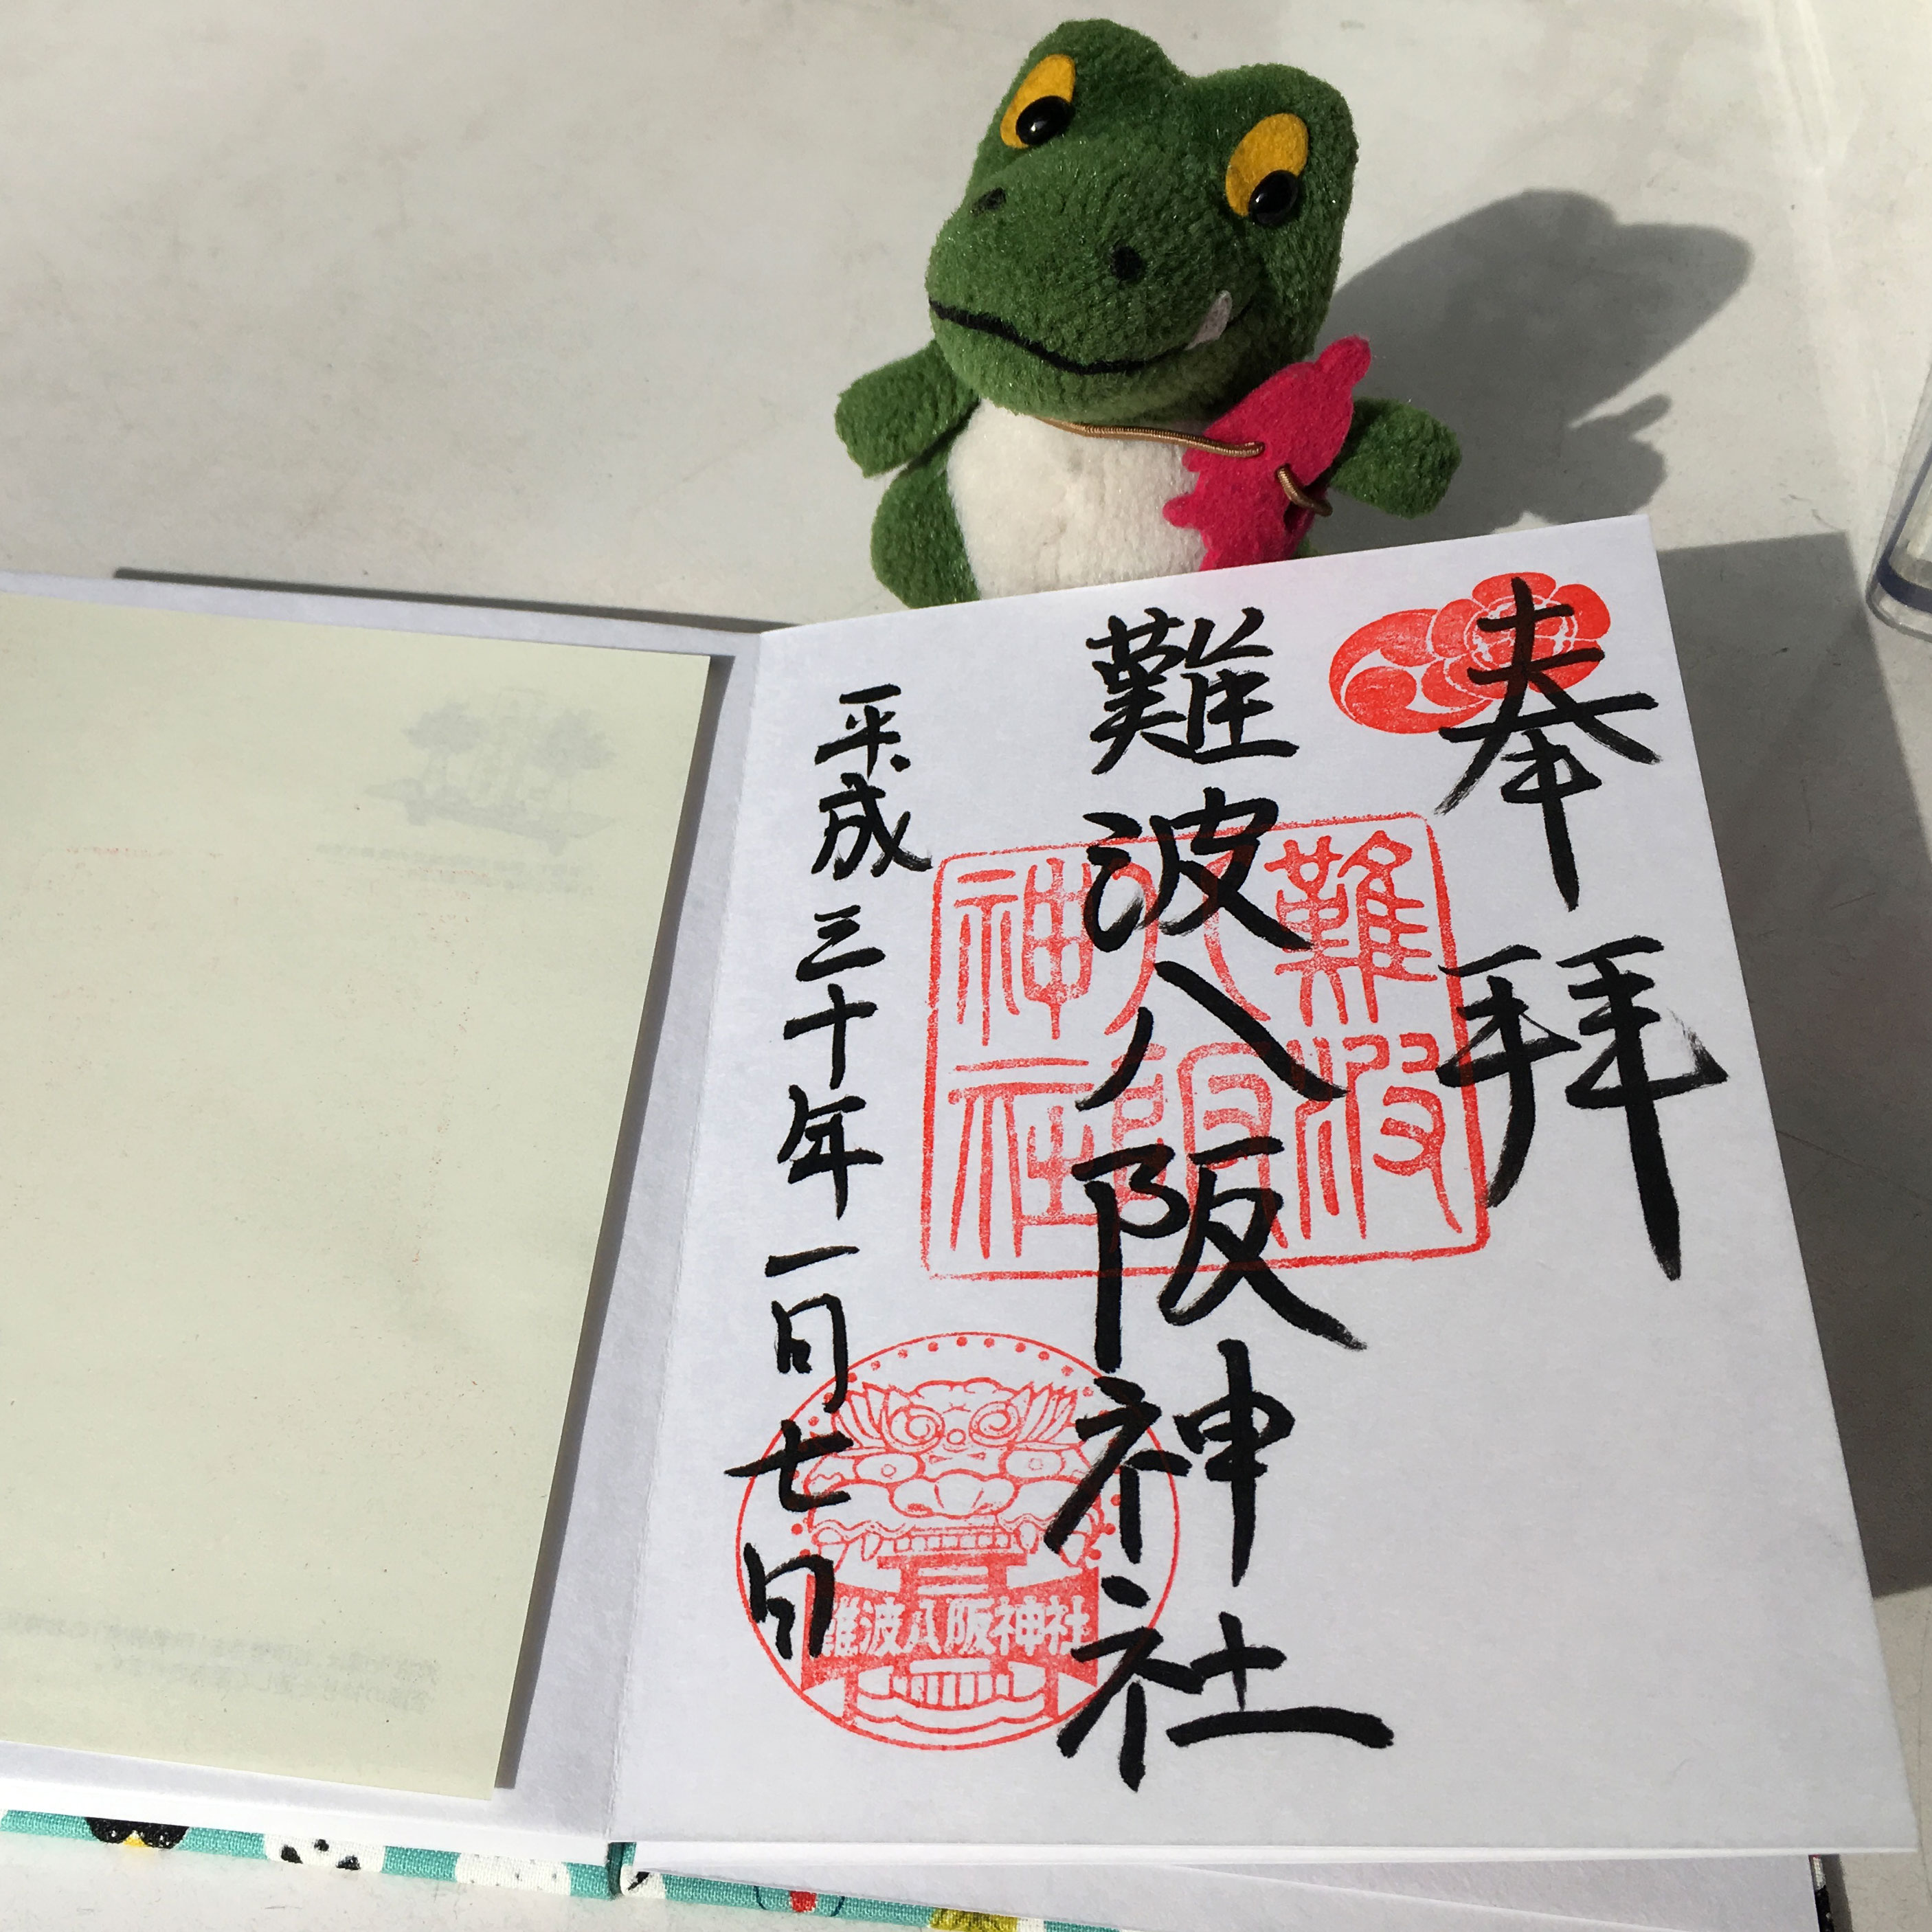 奉拝
難波八阪神社
平成三十年一月七日
難波
八阪
神社
難波八阪神社